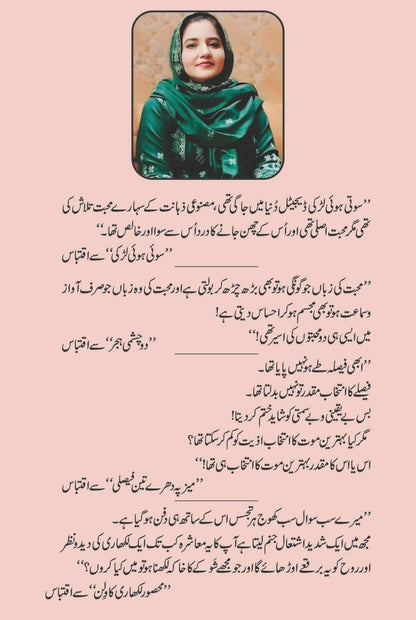 ’’سوتی ہوئی لڑکی ڈیجیٹل دُنیا میں جاگی تھی، مصنوعی ذہانت کے سہارے محبت تلاش کی
تھی مگر محبت اصلی تھی اور اُس کے چھن جانے کا درد اُس سے سوا اور خالص تھا۔‘‘
’’سوئی ہوئی لڑکی‘‘ سے اقتباس
’’محبت کی زباں جو گونگی ہو تو بھی بڑھ چڑھ کر بولتی ہے اور محبت کی وہ زباں جو صرف آواز
و سماعت ہو تو بھی مجسم ہو کر احساس دیتی ہے!
میں ایسی ہی دو محبتوں کی اسیر تھی!‘‘ ’’دو چشمی ہجر‘‘ سے اقتباس
’’ابھی فیصلہ طے ہو نہیں پایا تھا۔
فیصلے کا انتخاب مقدر تو نہیں بدلتا تھا۔
بس بے یقینی و بے سمتی کو شاید ختم کر دیتا!
مگر کیا بہترین موت کا انتخاب اذیت کو کم کر سکتا تھا؟
اس یا اس کا مقدر بہترین موت کا انتخاب ہی تھا!‘‘
’’میز پہ دھرے تین فیصلے‘‘ سے اقتباس
’’میرے سب سوال سب کھوج ہر تجسس اس کے ساتھ ہی دفن ہو گیا ہے۔
مجھ میں ایک شدید اشتعال جنم لیتا ہے آپ کا یہ معاشرہ کب تک ایک لکھاری کی دید و نظر
اور روح کو یہ برقعے اوڑھائے گا اور جو مجھے شَو کے خاکہ لکھنا ہو تو میں کیا کروں؟‘‘
’’محصور لکھاری کا وِلن‘‘ سے اقتباس